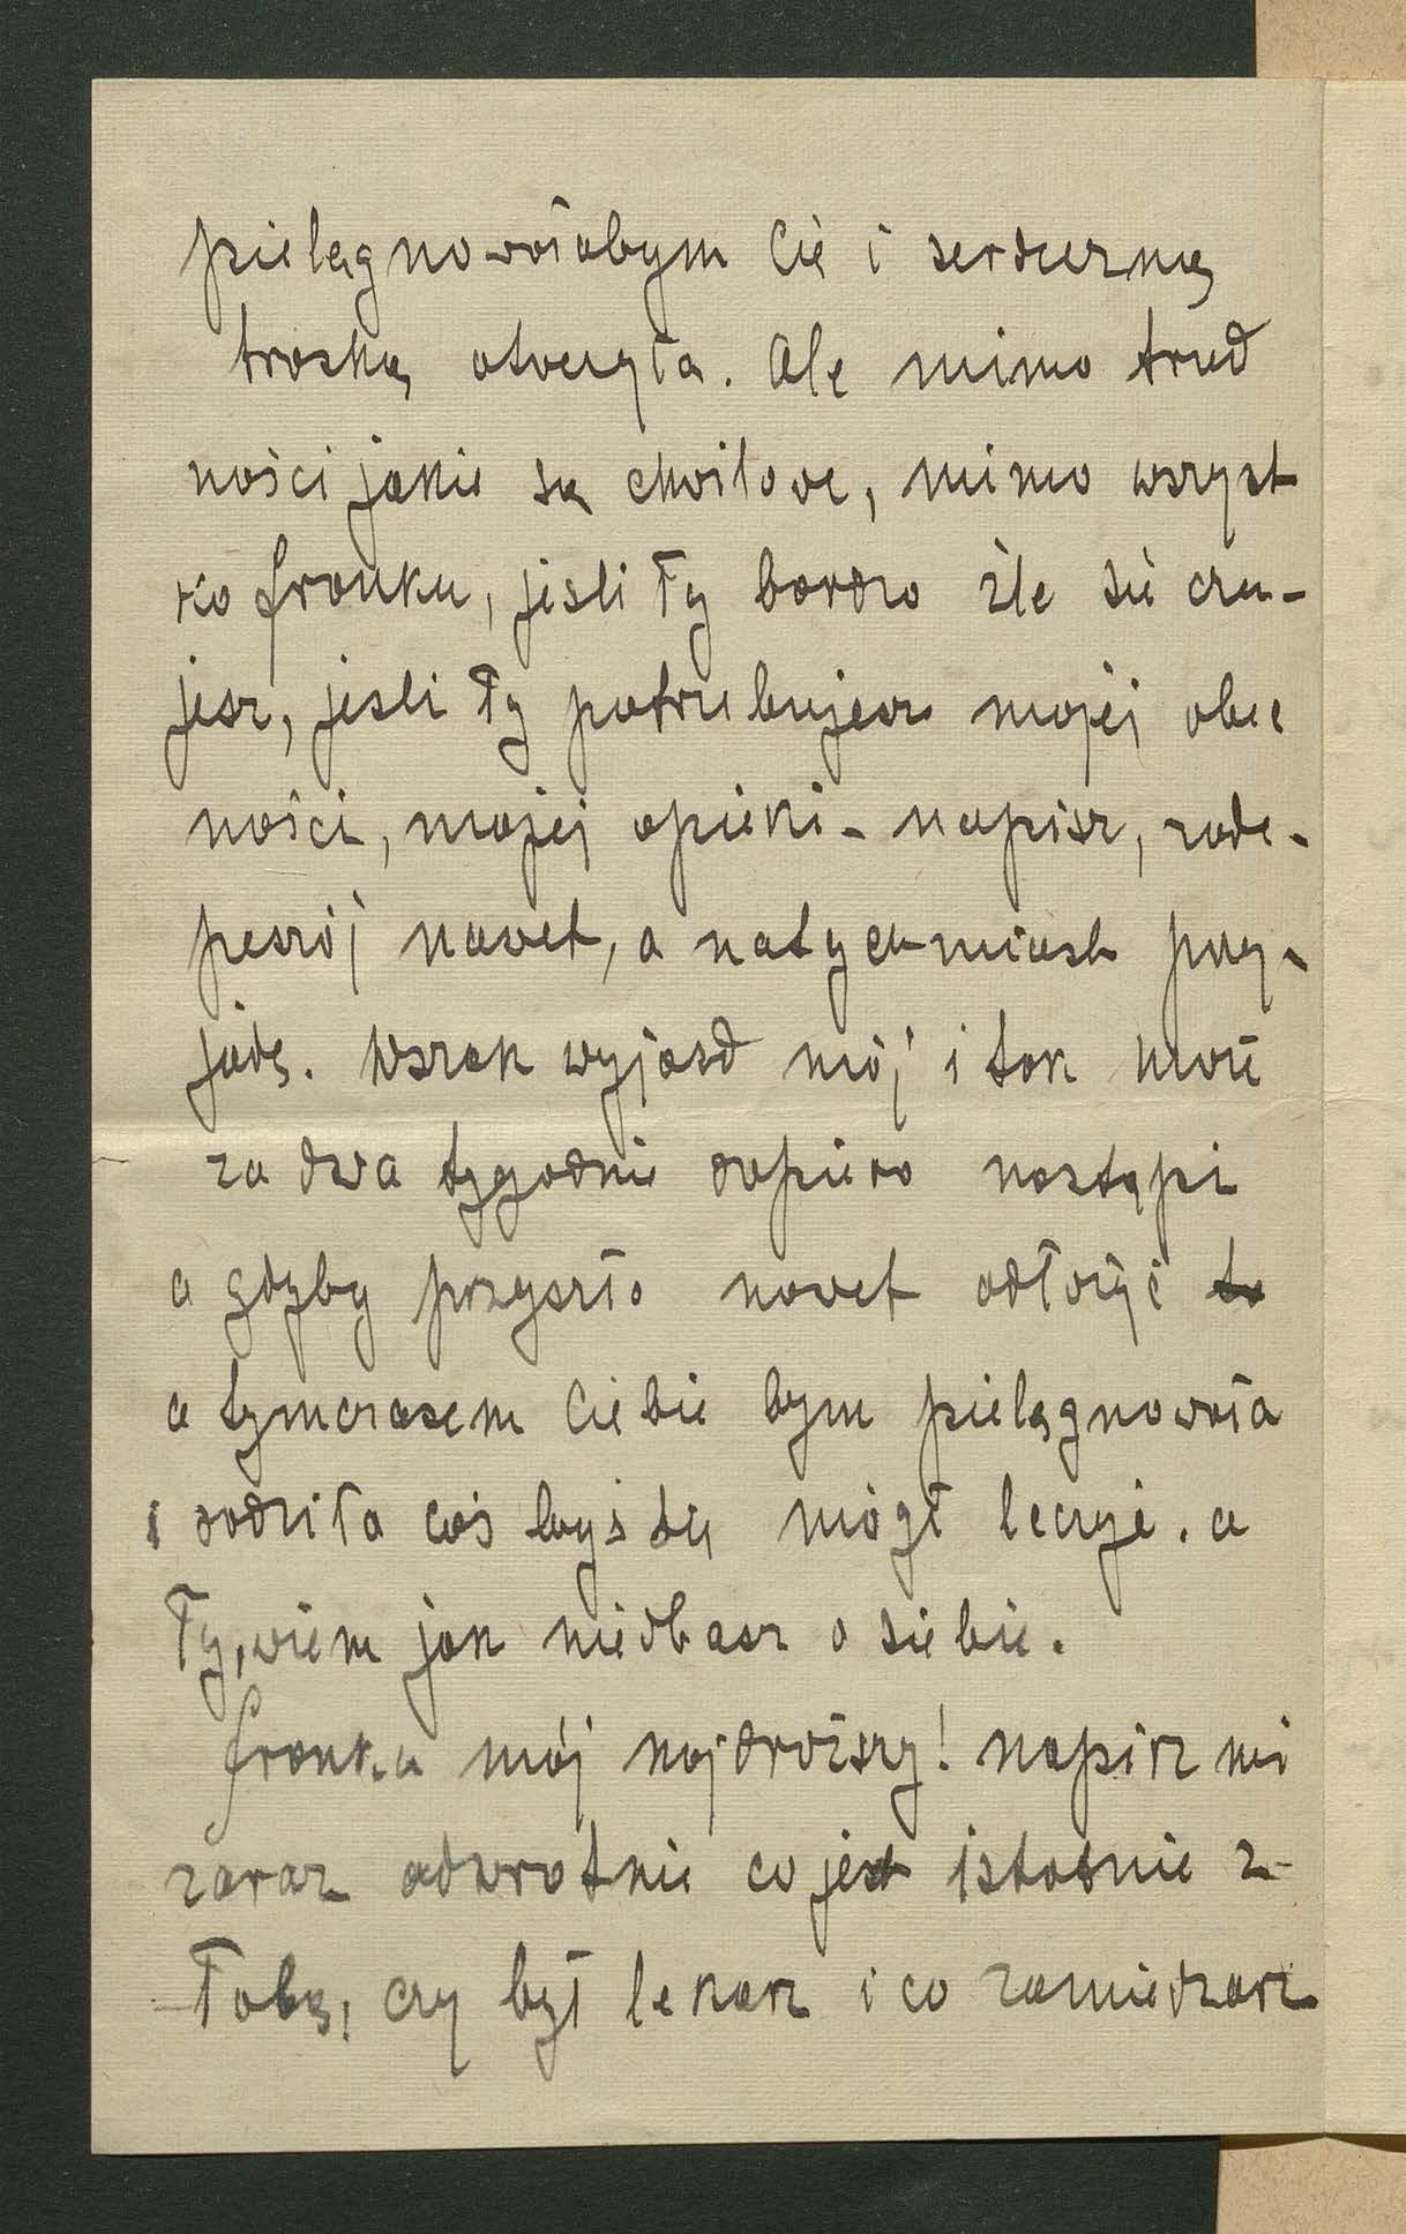 pielęgnowałabym Cię i serdeczną
troską otoczyła. Ale mimo trud
ności jakie są chwilowe, mimo wszyst
ko Franku, jeśli Ty bardzo źle się czu-
jesz, jeśli Ty potrzebujesz mojej obec
ności, mojej opieki - napisz, zade-
peszój nawet, a natychmiast przy-
jadę. Wszak wyjazd mój i tak może
za dwa tygodnie dopiero nastąpi
a gdyby przyszło nawet odłożyć to
a tymczasem Ciebie bym pielęgnowała
i radziła coś byś się mógł leczyć. a
Ty, wiem jak niedbasz o siebie.
Franku mój najdroższy! napisz mi
zaraz odwrotnie co jest istotnie z
Tobą, czy był lekarz i co zamierzasz